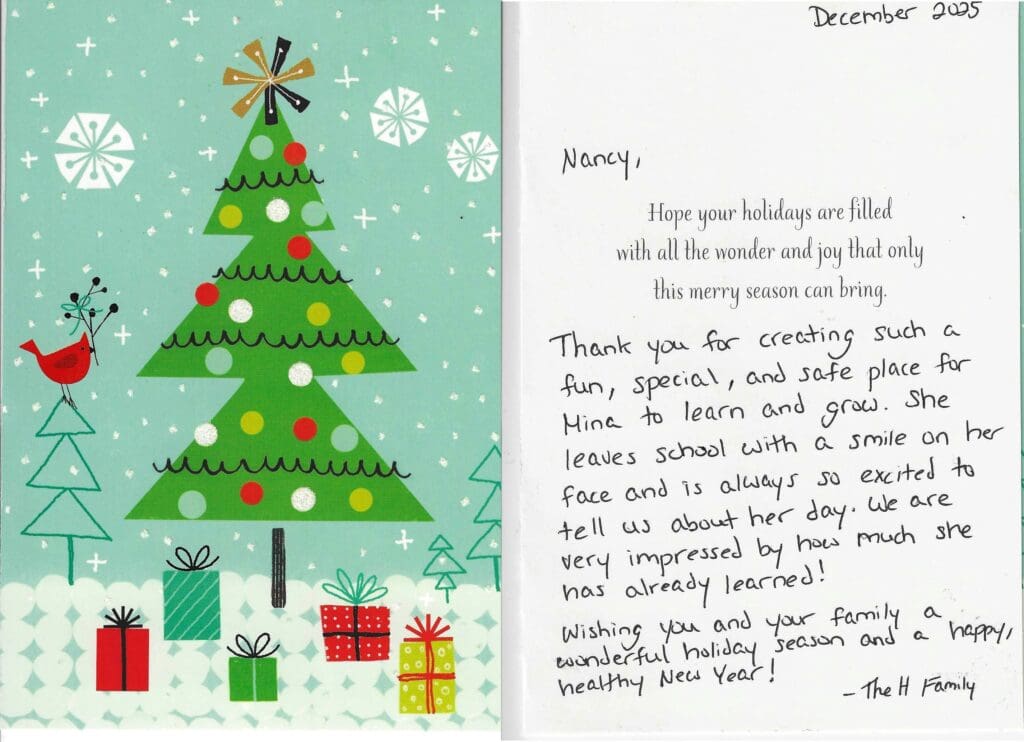 December 2025
Nancy,
Hope your holidays are filled
with all the wonder and joy that only
this merry season can bring.
Thank you for creating such a
fun, special, and safe place for
Mina to learn and grow. She
leaves school with a smile on her
face and is always so excited to
tell us about her day. We are
very impressed by how much she
has already learned!
Wishing you and your family a
wonderful holiday season and a happy,
healthy New Year!
- The H Family